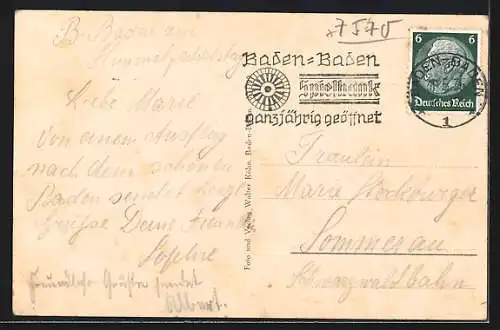 *7570
B-Baden am
Himmelfahrtstag
Liebe Marie
Von einem Ausflug
nach dem schönen
Baden sendet
Grüsse Deine
Sophie
Freundliche Grüsse sendet
Albert.
Baden=Baden
Spielbank
ganzjährig geöffnet
6 6
Deutsches Reich
BADEN-BADEN
1
Foto und Verlag Walter Röhn, Baden-Baden
Fräulein
Marie Stockburger
Sommerau
Schwarzwaldbahn